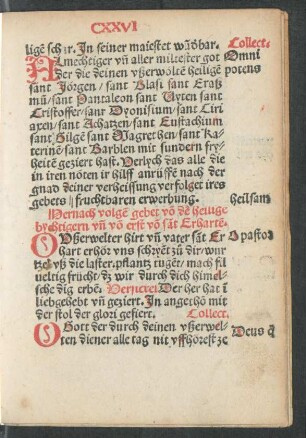 CXXVI
ligē schar. In seiner maiestet wūdbar. Collect.
Almechtiger vn̄ aller miltester got Omni
der die deinen vßerwölte heiligē potens
sant Jörgen / sant Blasi sant Eraß
mū / san Pantaleon sant Vyten sant
Cristoffer / sanr Dyonisium / sant Ciri
axen / sant Achatzen / sant Eustachium
sant Gilgē sant Magrethen / sant Ka-
terinē / sant Barblen mit sundern fry-
heitē geziert hast. Verlych das alle die
in iren nöten ir hilff anrüffē nach der
gnad deiner verheissung verfolget ires
gebets heilsam
fruchtbaren erwerbung.
Hernach volgē gebet vō dē heilige
bychtigern vn̄ vō erst vō sāt Erharte.
O Vßerwelter hirt vn̄ vater sāt Er O pastor
hart erhöz vns schryēt zů dir / wur
tzel vß die laster. pflantz tugēt / mach fil
ueltig frucht / dz wir durch dich himel-
sche dīg erbē. Versickel Der her hat ī
liebgehebt vn̄ geziert. In angethō mit
der stol der glori geziert. Collect.
O Gott der durch deinen vßerwel- Deus q̄
ten diener alle tag nit vffhörest ze